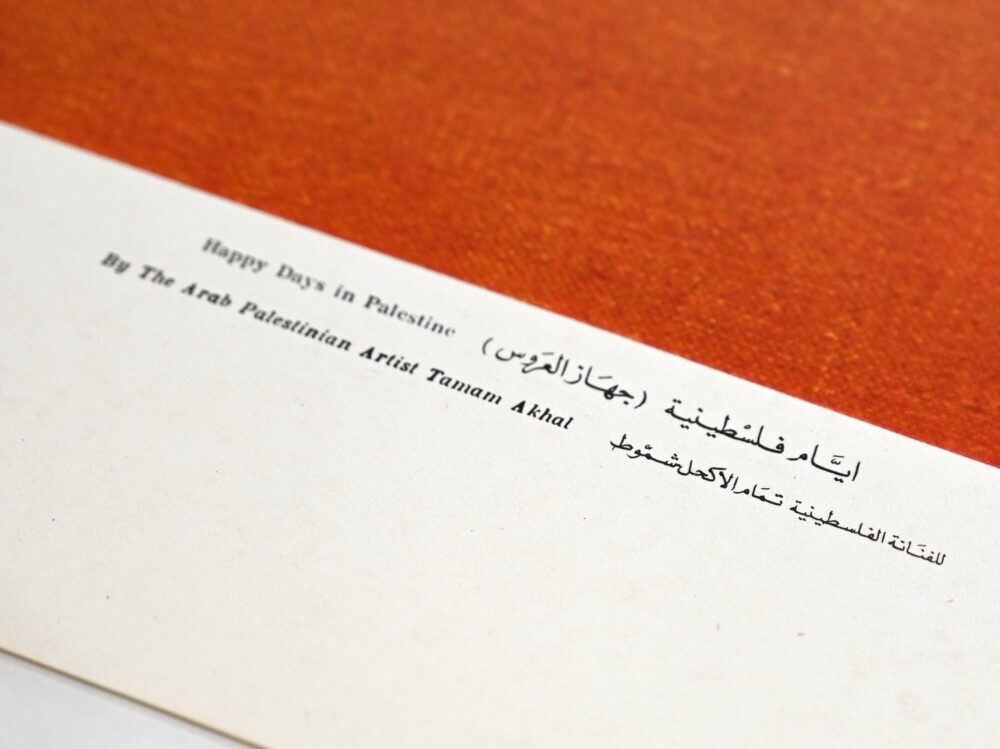 Happy Days in Palestine
By The Arab Palestinian Artist Tamam Akhal
ايَّام فلسْطينية (جهَاز العَروس)
للفنَانة الفلسطينية تمَام الأكحل شمّوط